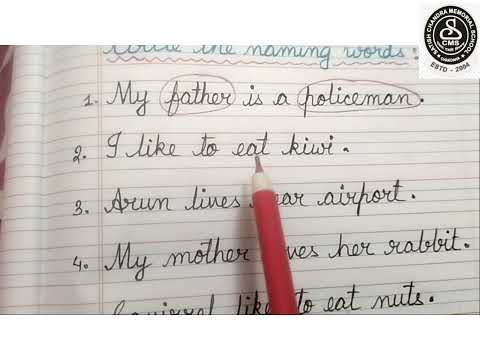 Circle the naming words:
1. My father is a policeman.
2. I like to eat kiwi.
3. Arun lives near airport.
4. My mother loves her rabbit.
Squirrel like to eat nuts.
SATISH CHANDRA MEMORIAL SCHOOL
CMS
CHAKDAHA
ESTD - 2004